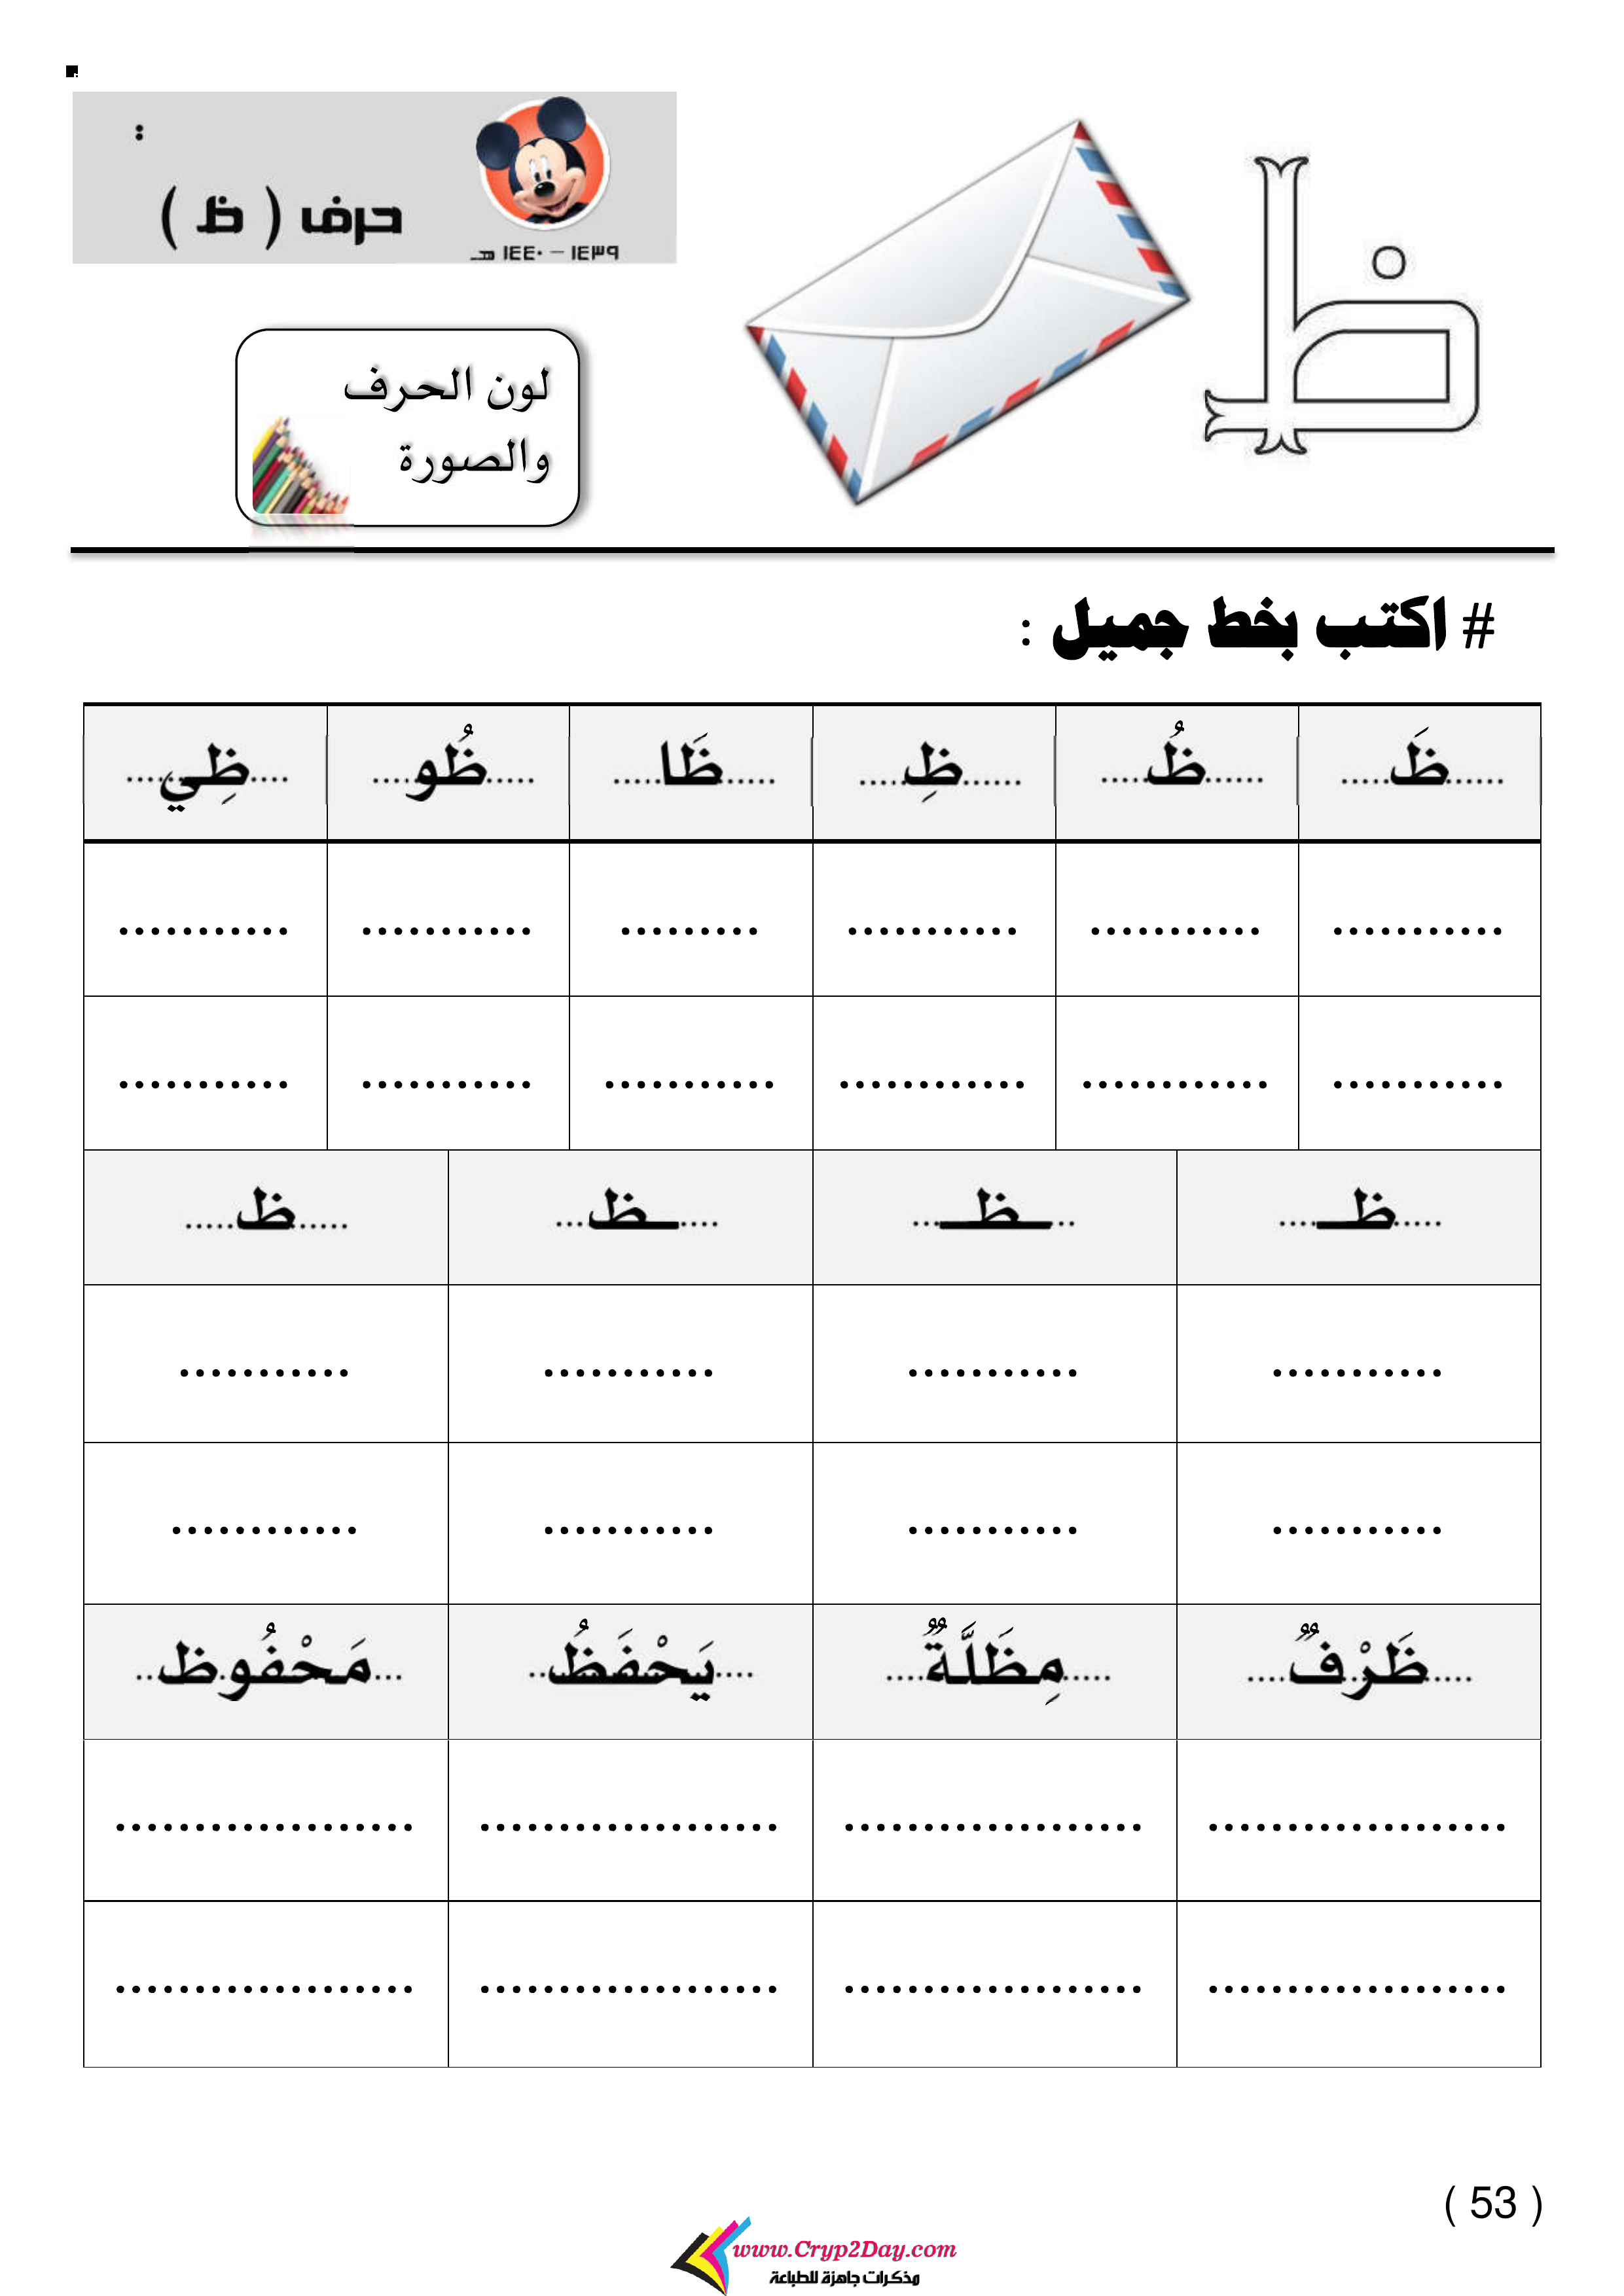 :
حرف ( ظ )
١٤٣٩ – ١٤٤٠ هـ
ظ
لون الحرف
والصورة
# اكتب بخط جميل :
......ظَ..... ......ظُ..... ......ظِ..... .....ظَا..... .....ظُو.... ....ظِي....
........... ........... ........... ......... ........... ...........
........... ............ ............ ........... ........... ...........
.....ظـ.... ..ـظـ... ....ـظ... ......ظ.....
........... ........... ........... ...........
........... ........... ........... ............
....ظَرْفٌ.... .....مِظَلَّةٌ.... ....يَحْفَظُ.. ...مَحْفُوظ..
................... ................... ................... ...................
................... ................... ................... ...................
( 53 )
www.Cryp2Day.com
مذكرات جاهزة للطباعة